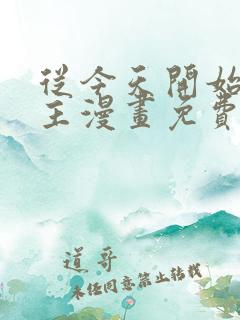 從今天開始
王漫畫免費
道哥
未經同意禁止轉載